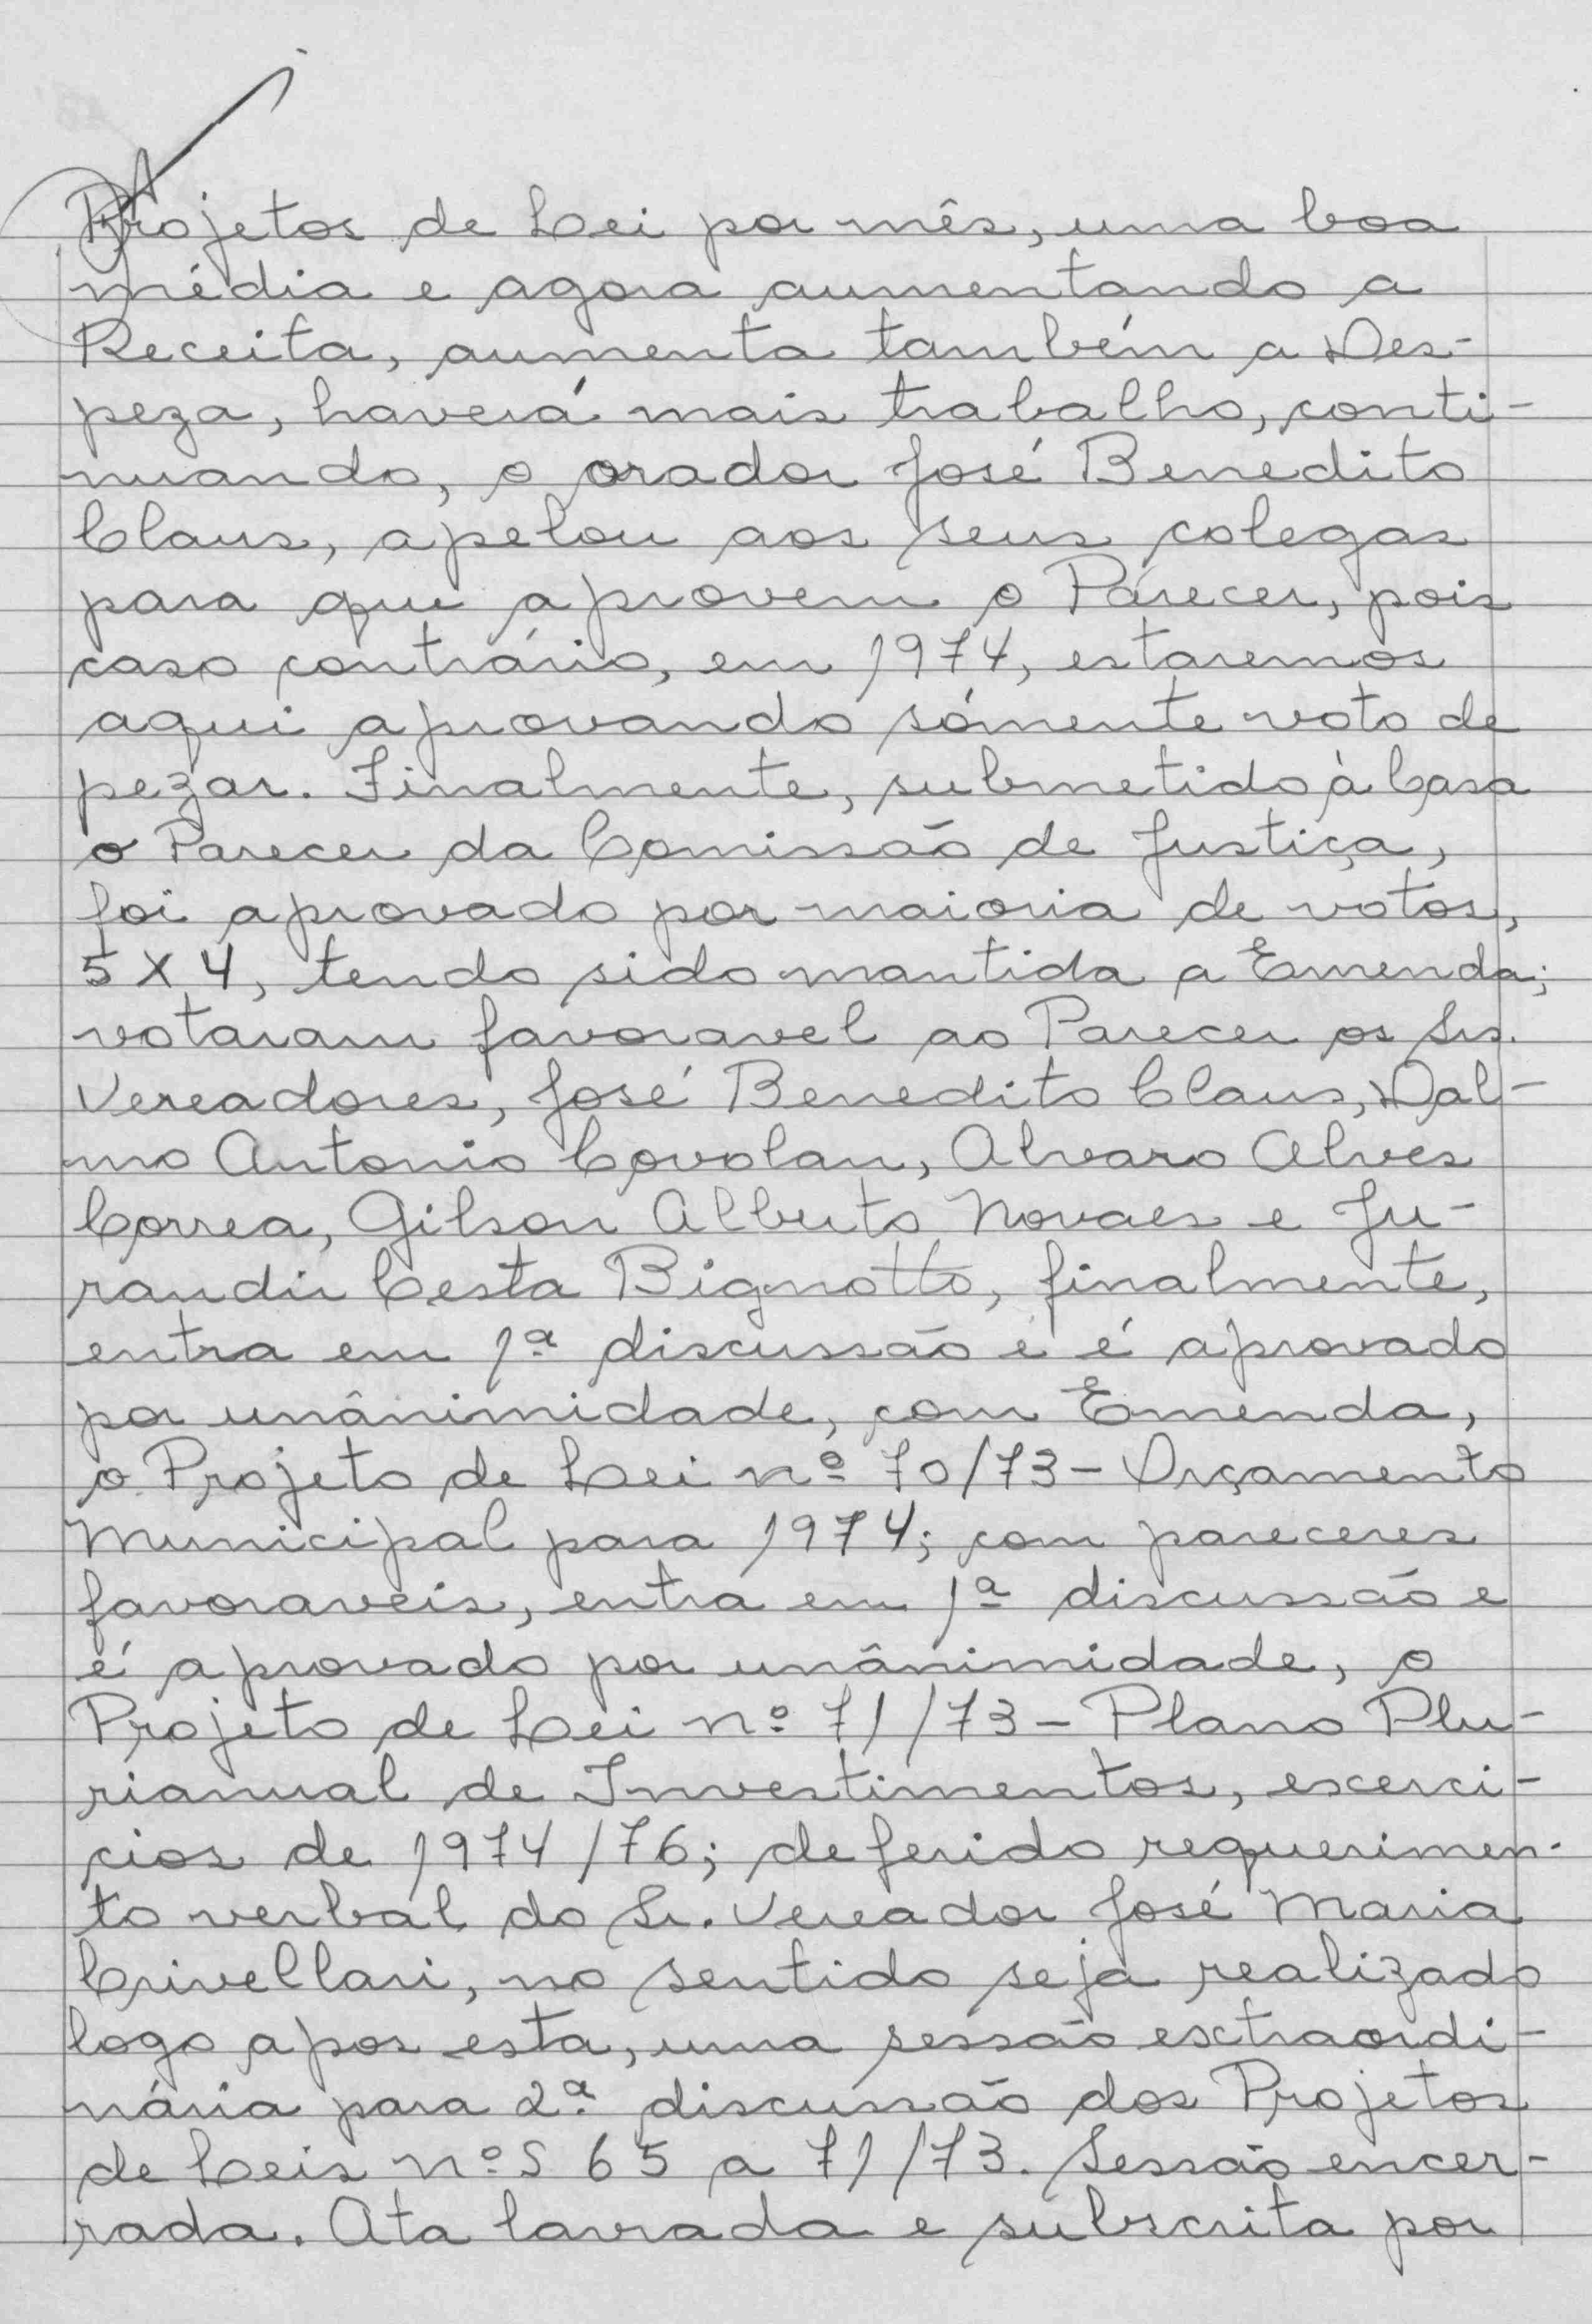 Projetos de Lei por mês, uma boa
média e agora aumentando a
Receita, aumenta também a Des-
peza, haverá mais trabalho, conti-
nuando, o orador José Benedito
Claus, apelou aos seus colegas
para que aprovem o Parecer, pois
caso contrário, em 1974, estaremos
aqui aprovando sómente voto de
pezar. Finalmente, submetido à Casa
o Parecer da Comissão de Justiça,
foi aprovado por maioria de votos,
5 X 4, tendo sido mantida a Emenda;
votaram favoravel ao Parecer os Srs.
Vereadores, José Benedito Claus, Dal-
mo Antonio Covolan, Alvaro Alves
Correa, Gilson Alberto Novaes e Ju-
randir Cesta Bignotto, finalmente,
entra em 1ª discussão e é aprovado
por unânimidade, com Emenda,
o Projeto de Lei nº 70/73 - Orçamento
Municipal para 1974; com pareceres
favoraveis, entra em 1ª discussão e
é aprovado por unânimidade, o
Projeto de Lei nº 71/73 - Plano Plu-
rianual de Investimentos, excerci-
cios de 1974/76; deferido requerimen-
to verbal do Sr. Vereador José Maria
Crivellari, no sentido seja realizado
logo apos esta, uma sessão extraordi-
nária para 2ª discussão dos Projetos
de Leis nºs 65 a 71/73. Sessão encer-
rada. Ata lavrada e subscrita por